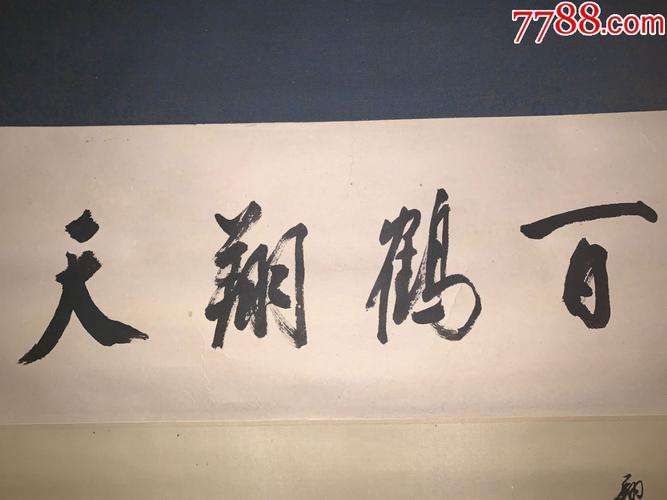 7788.com
百鹤翔天
翔